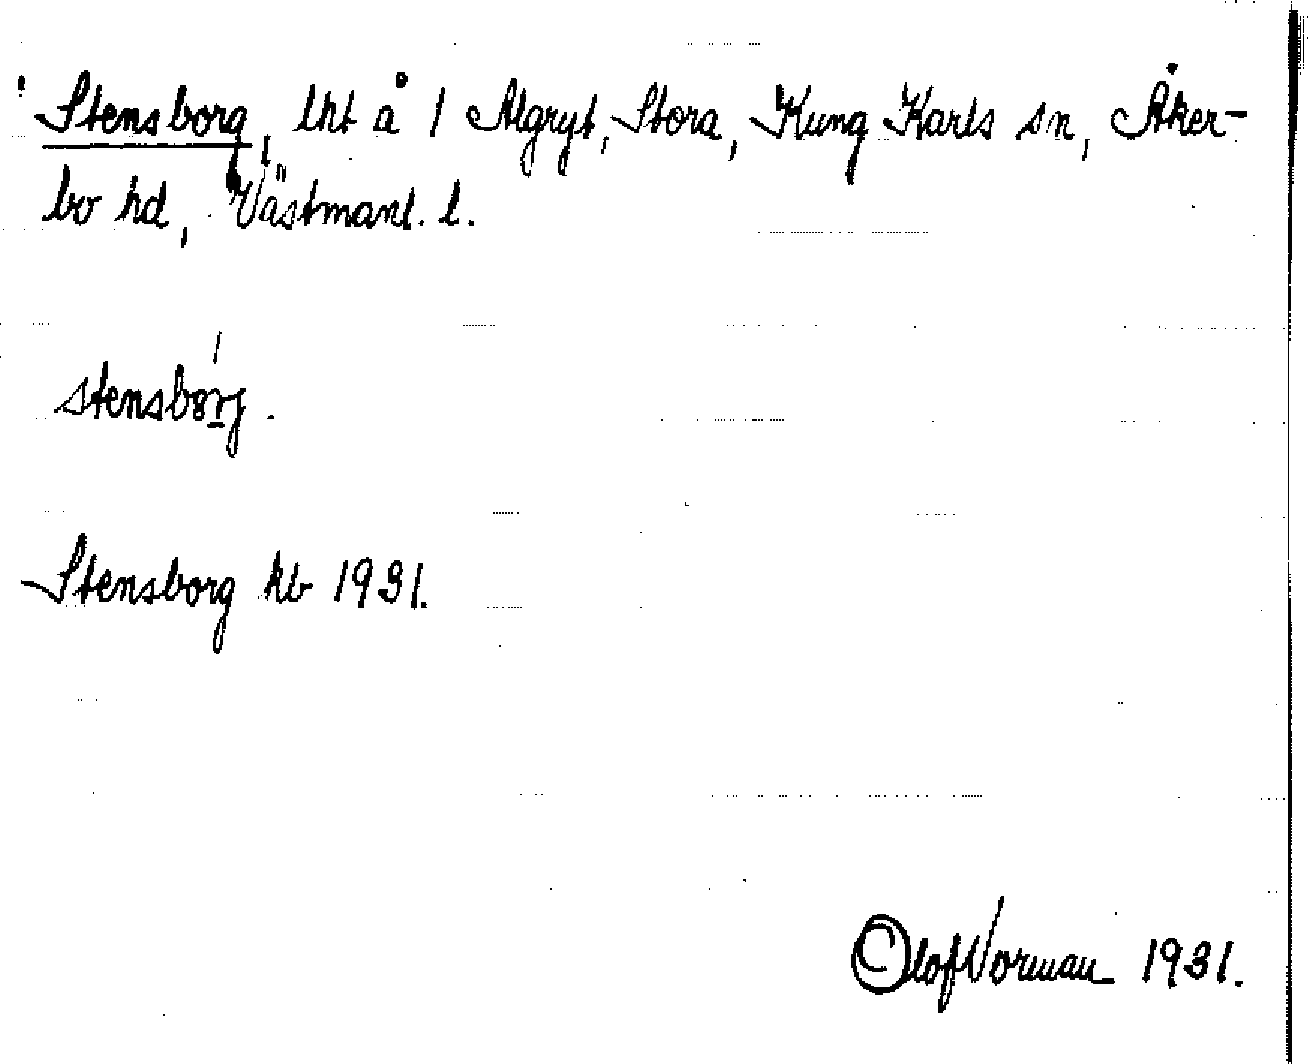 Stensborg, lht å 1 Algryt, Stora, Kung Karls sn, Åker-
bo hd, Västmanl. l.
stensbórj.
Stensborg kb 1931.
Olof Norman 1931.